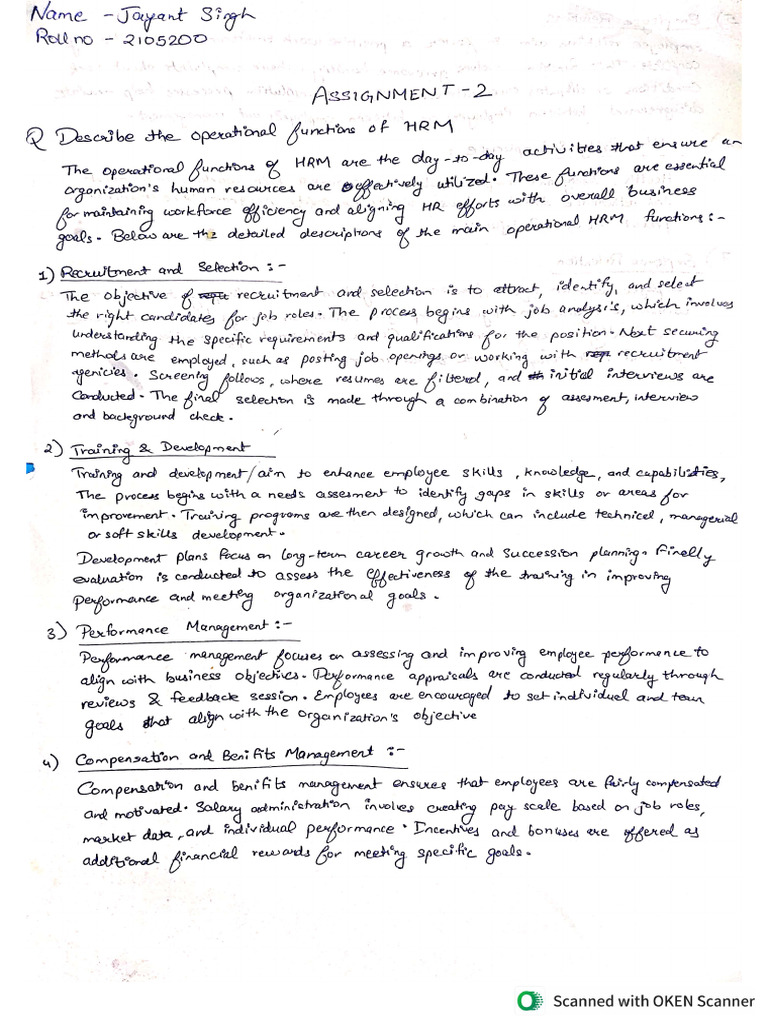 Name - Jayant Singh
Roll no - 2105200
ASSIGNMENT - 2
Q Describe the operational functions of HRM
The operational functions of HRM are the day-to-day activities that ensure an
organization's human resources are effectively utilized. These functions are essential
for maintaining workforce efficiency and aligning HR efforts with overall business
goals. Below are the detailed descriptions of the main operational HRM functions:-
1) Recruitment and Selection :-
The objective of recruitment and selection is to attract, identify, and select
the right candidates for job roles. The process begins with job analysis, which involves
understanding the specific requirements and qualifications for the position. Next securing
methods are employed, such as posting job openings or working with recruitment
agencies. Screening follows, where resumes are filtered, and initial interviews are
Conducted. The final selection is made through a combination of assesment, interview
and background check.
2) Training & Development
Training and development/aim to enhance employee skills, knowledge, and capabilities,
The process begins with a needs assesment to identify gaps in skills or areas for
improvement. Training programs are then designed, which can include technicel, managerial
or soft skills development.
Development plans focus on long-term career growth and succession planning. Finelly
evaluation is conducted to assess the effectiveness of the training in improving
performance and meeting organizational goals.
3) Performance Management :-
Performance management focuses on assessing and improving employee performance to
align with business objectives. Performance appraisals are conducted regularly through
reviews & feedback session. Employees are encouraged to set individuel and team
goals that align with the organization's objective
4) Compensation and Benifits Management :-
Compensation and benifits management ensures that employees are fairly compensated
and motivated. Salary administration involves creating pay scale based on job roles,
market data, and individual performance. Incentives and bonuses are offered as
additional financial rewards for meeting specific goals.
Scanned with OKEN Scanner